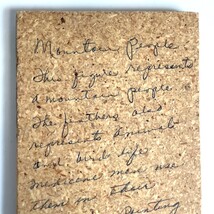 Mountain People
This figure represents
a mountain people.
The feathers also
represents animals
and bird life
medicine men use
them in their
Painting